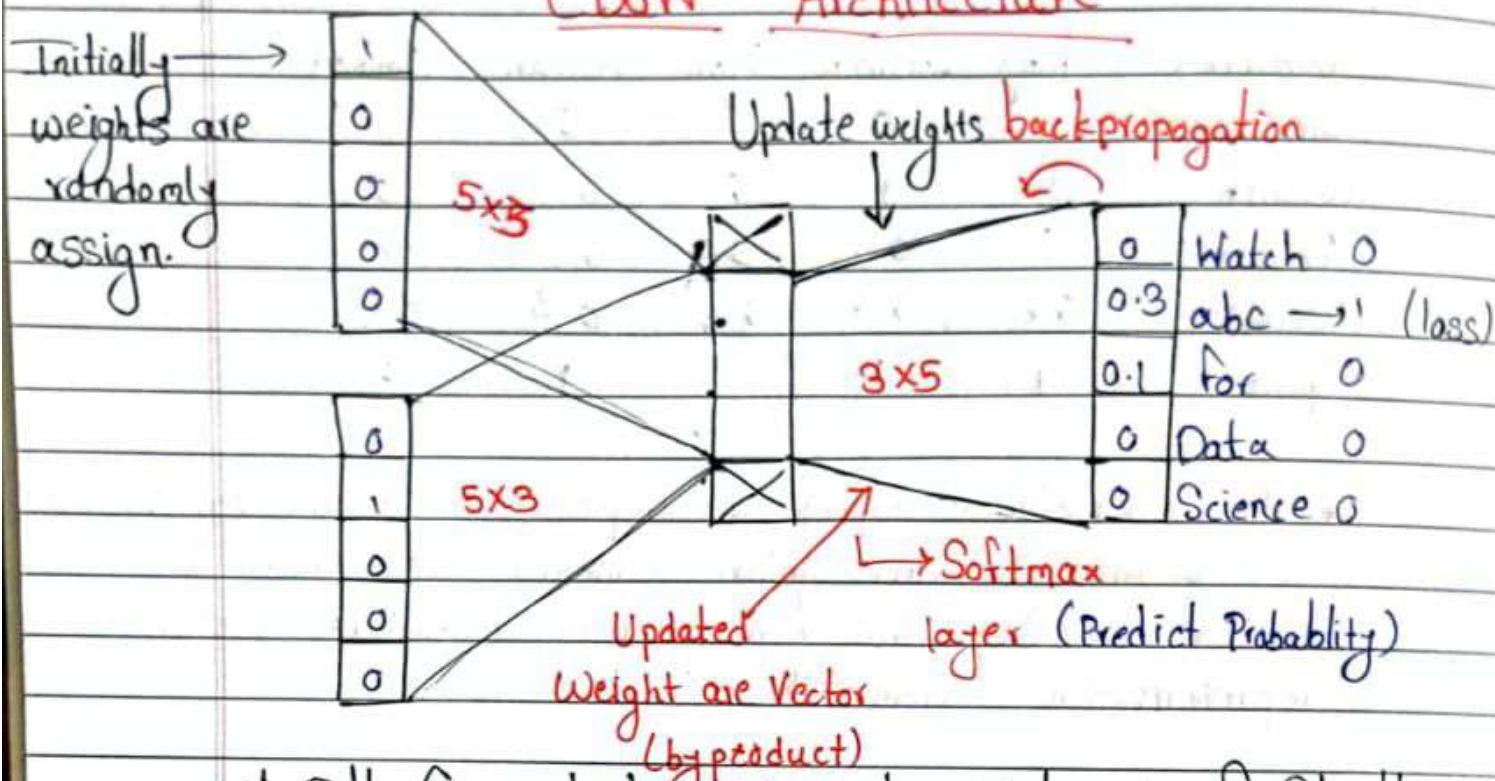 CBOW Architecture
Initially →
weights are
randomly
assign.
1
0
0
0
0
5×3
Update weights backpropogation
0 Watch 0
0.3 abc → 1 (loss)
0.1 for 0
0 Data 0
0 Science 0
3×5
0
1
0
0
0
5×3
↳ Softmax
layer (Predict Probablity)
Updated
Weight are Vector
(byproduct)